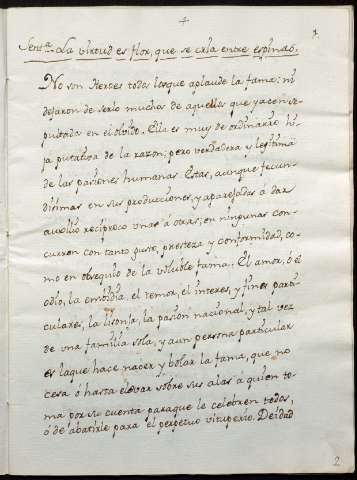 4
Sent.ª La virtud es flor, que se cría entre espinas.
No son Heroes todos los que aplaude la fama: ni
dejaron de serlo muchos de aquellos que yacen se-
pultados en el olvido. Ella es muy de ordinario hi-
ja putativa de la razon; pero verdadera y legitima
de las pasiones humanas. Estas, aunque fecun-
disimas en sus producciones, y aparejadas á dar
auxilio reciproco unas á otras; en ningunas con-
curren con tanto gusto, presteza y conformidad, co-
mo en obsequio de la voluble fama. El amor, ó el
odio, la embidia, el temor, el interes, y fines parti-
culares, la lisonja, la pasion nacional, y tal vez
de una familia sola, y aun persona particular
es la que hace nacer y bolar la fama, que no
cesa ó hasta elevar sobre sus alas á quien to-
ma por su cuenta paraque le celebren todos,
ó de abatirle para el perpetuo vituperio. Deidad
2